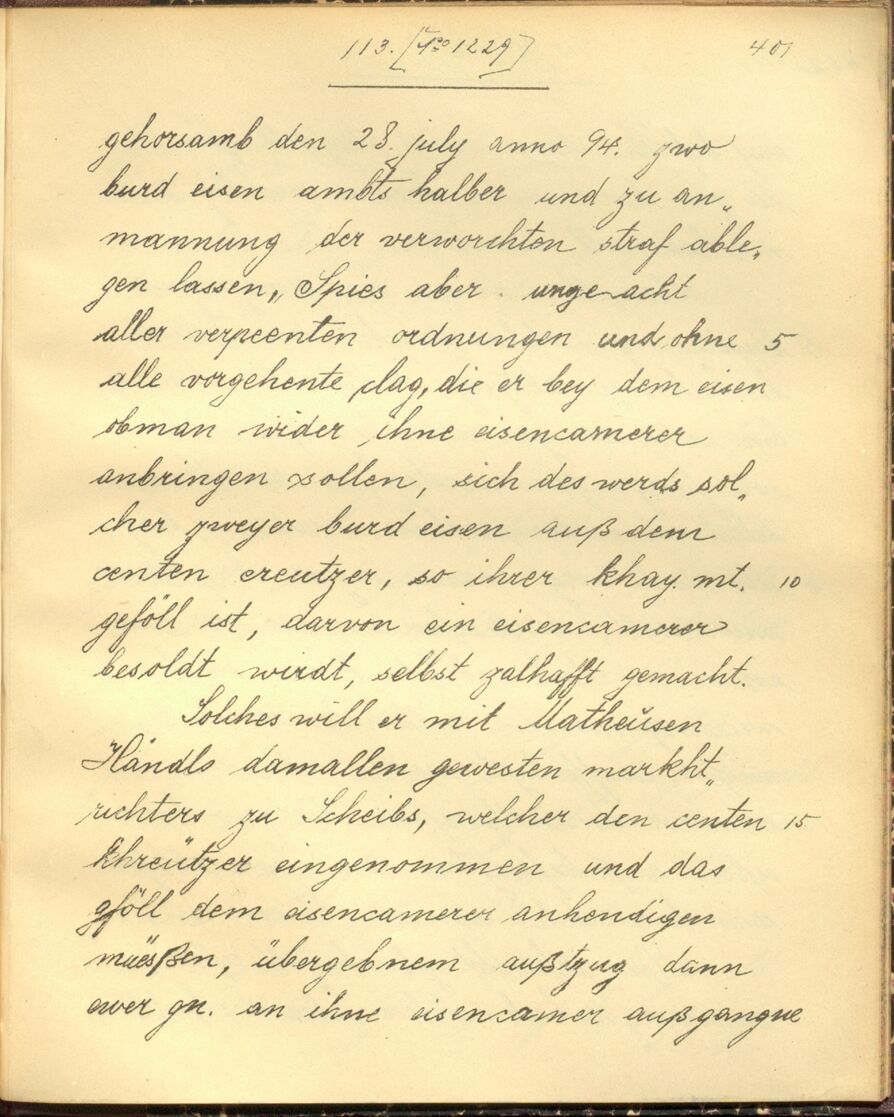 113. [No 1229] 401
gehorsamb den 28. july anno 94. zwo
burd eisen ambts halber und zu an„
mannung der verworchten straf able„
gen lassen„ Spies aber ungeacht
aller verpeenten ordnungen und ohne 5
alle vorgehente clag, die er bey dem eisen
obman wider ihne eisencamerer
anbringen sollen, sich des werds sol„
cher zweyer burd eisen auß dem
centen creutzer, so ihrer khay. mt. 10
geföll ist, darvon ein eisencamerer
besoldt wirdt, selbst zalhafft gemacht.
Solches will er mit Matheüsen
Händls damallen gewesten markht„
richters zu Scheibs, welcher den centen 15
khreützer eingenommen und das
gföll dem eisencamerer anhendigen
müesßen, übergebnem außtzug dann
ewer gn. an ihne eisencamer außgangne